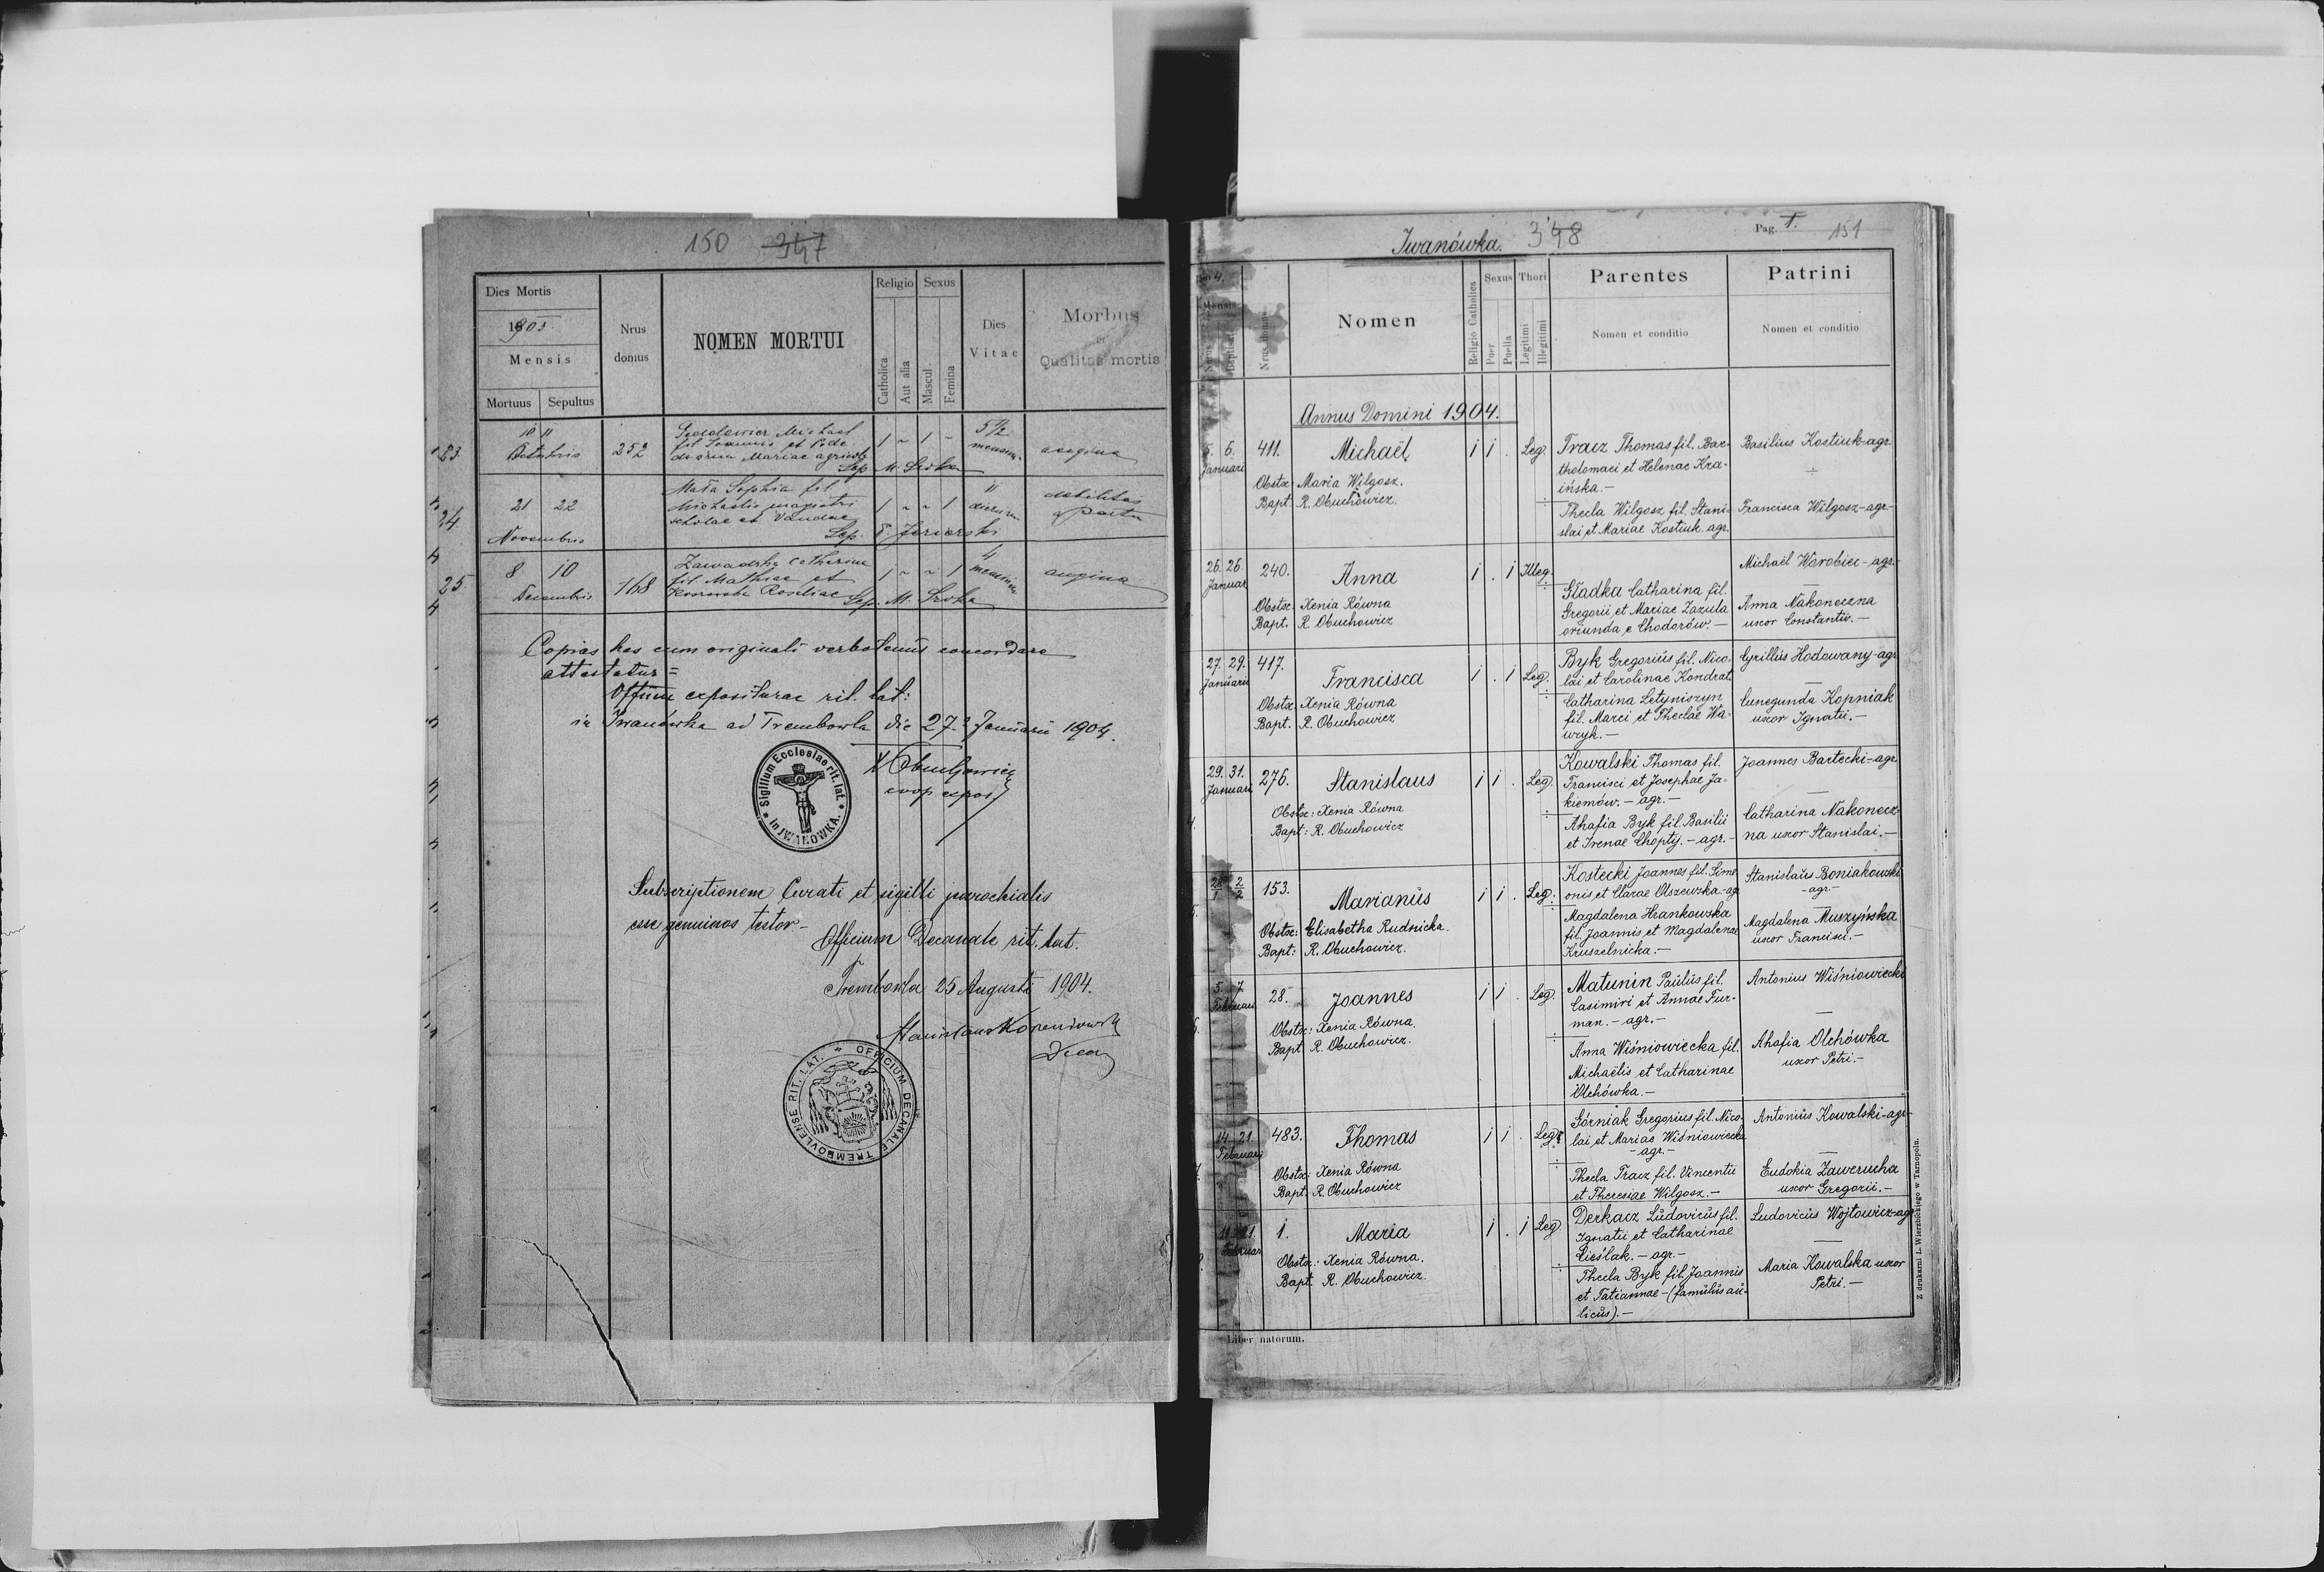 150 347
Dies Mortis
1903.
Mensis
Mortuus Sepultus
Nrus
domus
NOMEN MORTUI
Religio
Catholica
Aut alia
Sexus
Mascul.
Femina
Dies
Vitae
Morbus
et
Qualitas mortis
23
Octobris
252
Michael
fil. Joannis et
Mariae agricola
Sep. M. Sroka
1 1
5 1/2
mensium
angina
24
21 22
Novembris
Sophia fil.
Michaelis magistri
scholae et Vandae
Sep.
1 1
11
dierum
debilitas
a partu
25
8 10
Decembris
168
Zawadzka Catharina
fil. Mathiae et
Rosaliae
Sep. M. Sroka
1 1
4
mensium
angina
Copias has cum originali verbotenus concordare
attestatur =
Offium expositurae rit. lat:
in Iwanówka ad Trembowla die 27. Januarii 1904.
Obuchowicz
coop expos
* Sigillum Ecclesiae rit. lat. *
in JWANOWKA.
Subscriptionem Curati et sigilli parochialis
esse genuinos testor -
Officium Decanale rit. lat.
Trembowla 25 Augusti 1904.
OFFICIUM DECANALE TREMBOVLENSE RIT. LAT.
Iwanówka. 348
Pag. 1. 151
Mensis
Nrus domus
Nomen
Religio Catholica
Sexus
Puer
Puella
Thori
Legitimi
Illegitimi
Parentes
Nomen et conditio
Patrini
Nomen et conditio
Annus Domini 1904.
5. 6.
Januarii
411.
Michaël
Obstx: Maria Wilgosz.
Bapt: R. Obuchowicz.
1 1 . Leg.
Tracz Thomas fil. Bar-
tholomaei et Helenae Kra-
ińska. -
Thecla Wilgosz fil. Stani-
slai et Mariae Kostiuk. agr.
Basilius Kostiuk-agr.
Francisca Wilgosz-agr-
26. 26.
Januar
240.
Anna
Obstx: Xenia Równa
Bapt. R. Obuchowicz
1 . 1 Illeg.
Gładka Catharina fil.
Gregorii et Mariae Zazula
oriunda e Chodorów. -
Michaël Worobiec-agr-
Anna Nakoneczna
uxor Constantii. -
27. 29.
Januarii
417.
Francisca
Obstx. Xenia Równa
Bapt. R. Obuchowicz
1 . 1 Leg.
Byk Gregorius fil. Nico-
lai et Carolinae Kondrat
Catharina Letyniszyn
fil. Marci et Theclae Wa-
wryk. -
Cyrillus Hodowany-agr
Cunegunda Kopniak
uxor Ignatii. -
29. 31.
Januarii
276.
Stanislaus
Obstx: Xenia Równa
Bapt: R. Obuchowicz
1 1 . Leg.
Kowalski Thomas fil.
Francisci et Josephae Ja-
kiemów. - agr. -
Ahafia Byk fil. Basilii
et Irenae Chopty. - agr. -
Joannes Bartecki-agr
Catharina Nakonecz-
na uxor Stanislai. -
28/1 2/2
153.
Marianus
Obstx: Elisabetha Rudnicka.
Bapt: R. Obuchowicz.
1 1 . Leg.
Kostecki Joannes fil. Sime-
onis et Clarae Olszewska-agr
Magdalena Hrankowska
fil. Joannis et Magdalenae
Kruszelnicka. -
Stanislaus Boniakowski
- agr -
Magdalena Muszyńska
uxor Francisci. -
5. 7.
Februarii
28.
Joannes
Obstx: Xenia Równa.
Bapt. R. Obuchowicz.
1 1 . Leg.
Matunin Paulus fil.
Casimiri et Annae Fur-
man. - agr. -
Anna Wiśniowiecka fil.
Michaëlis et Catharinae
Olchówka. -
Antonius Wiśniowiecki
Ahafia Olchówka
uxor Petri. -
14. 21.
Februarii
483.
Thomas
Obstx: Xenia Równa
Bapt. R. Obuchowicz
1 1 . Leg.
Górniak Gregorius fil. Nico-
lai et Marias Wiśniowiecka
- agr. -
Thecla Tracz fil. Vincentii
et Theresiae Wilgosz. -
Antonius Kowalski-agr-
Eudokia Zawerucha
uxor Gregorii. -
21.
Februar
1.
Maria
Obstx: Xenia Równa.
Bapt. R. Obuchowicz.
1 . 1 Leg
Derkacz Ludovicus fil.
Ignatii et Catharinae
Cieślak. - agr. -
Thecla Byk fil. Joannis
et Tatiannae - (famulus au-
licus). -
Ludovicus Wojtowicz-agr
Maria Kowalska uxor
Petri. -
Liber natorum.
Z drukarni L. Wierzbickiego w Tarnopolu.